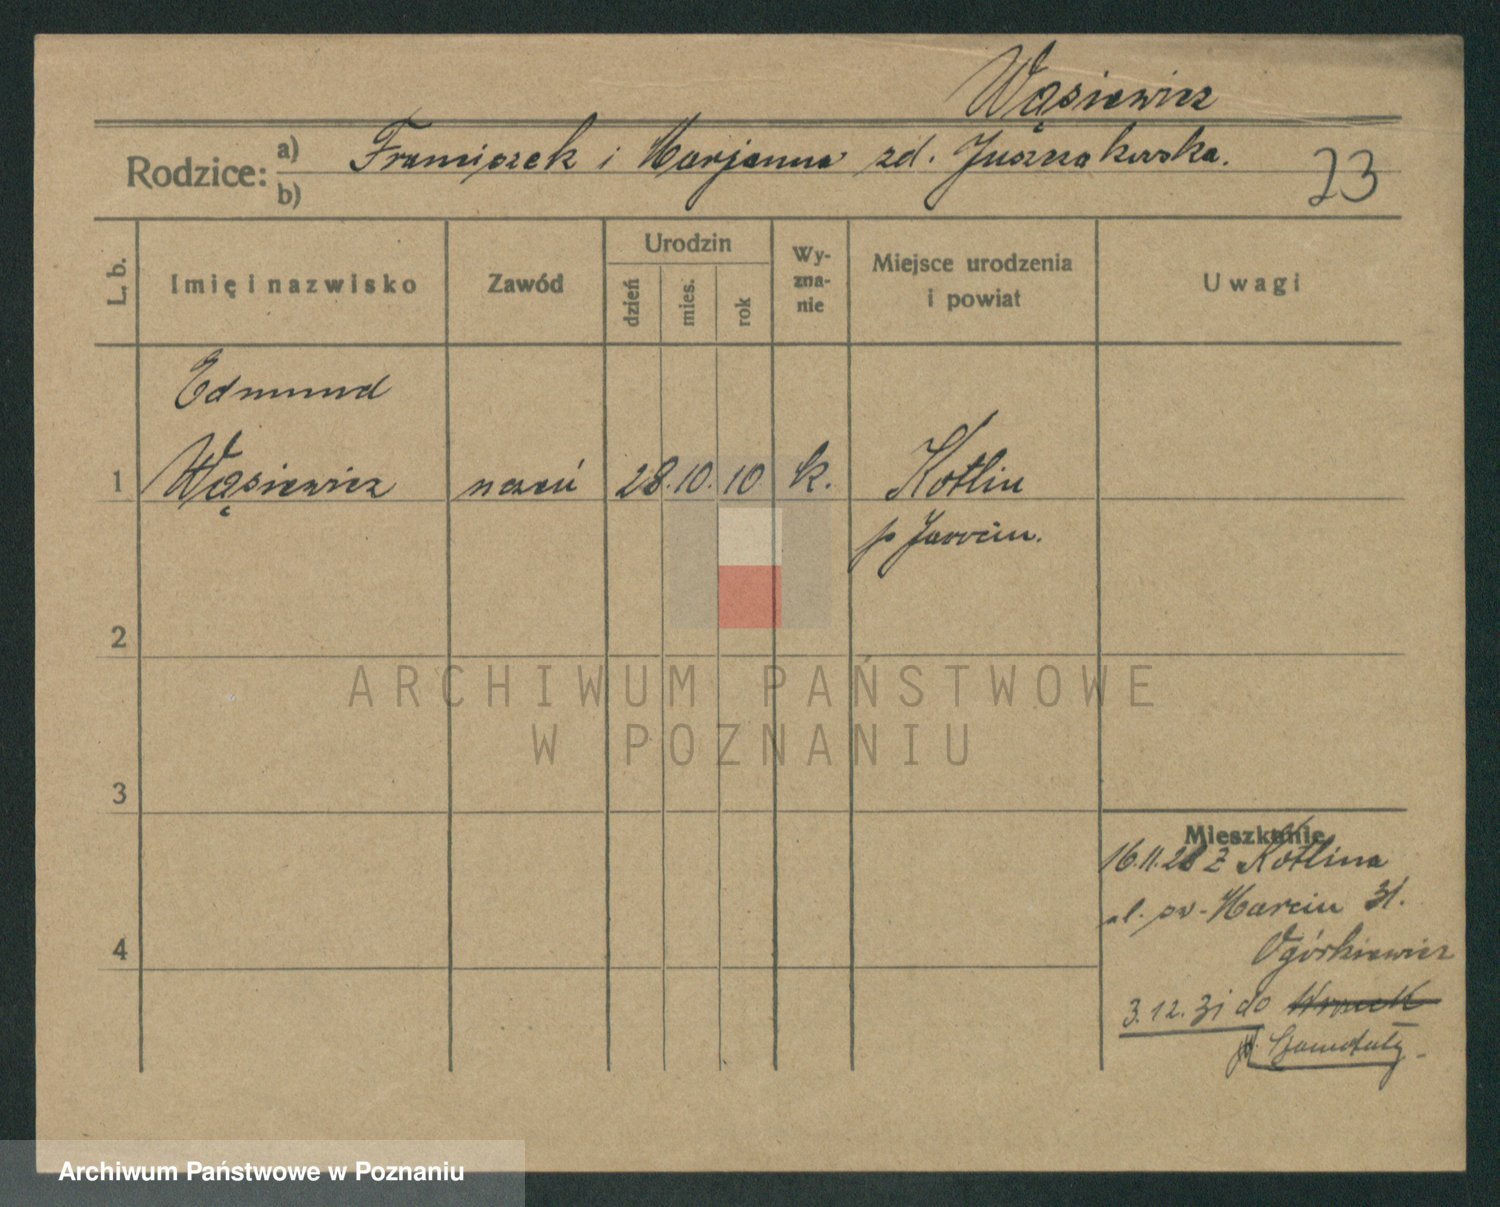 Wąsiewicz
Rodzice: a) Franciszek i Marjanna zd. Juszczakowska.
b)
23
L. b.
Imię i nazwisko
Zawód
Urodzin
dzień
mies.
rok
Wy-
zna-
nie
Miejsce urodzenia
i powiat
Uwagi
Edmund
1 Wąsiewicz uczeń 28. 10. 10 k. Kotlin
p Jarocin.
2
ARCHIWUM PAŃSTWOWE
W POZNANIU
3
Mieszkanie
16.11.28 z Kotlina
ul. św. Marcin 31.
Ogórkiewicz
4
3.12.31 do
Szamotuły
Archiwum Państwowe w Poznaniu